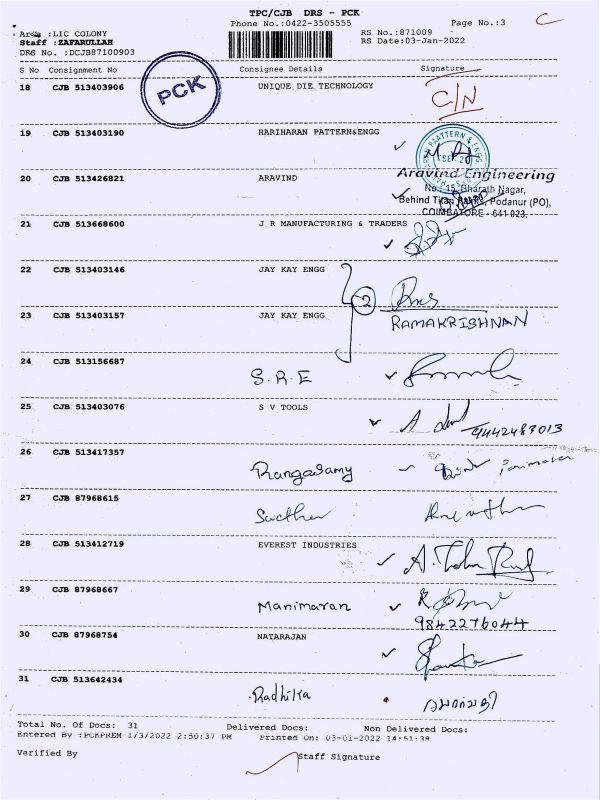 TPC/CJB DRS - PCK
Phone No.:0422-3505555 Page No.:3
Area :LIC COLONY RS No.:871009
Staff :ZAFARULLAH RS Date:03-Jan-2022
DRS No. :DCJB87100903
S No Consignment No Consignee Details Signature
PCK
18 CJB 513403906 UNIQUE DIE TECHNOLOGY C/N
19 CJB 513403190 HARIHARAN PATTERN&ENGG
20 CJB 513426821 ARAVIND
Aravind Engineering
No: 15, Bharath Nagar,
Behind Titan Podanur (PO),
COIMBATORE - 641 023.
21 CJB 513668600 J R MANUFACTURING & TRADERS
22 CJB 513403146 JAY KAY ENGG
2
23 CJB 513403157 JAY KAY ENGG RAMAKRISHNAN
24 CJB 513156687 S.R.E
25 CJB 513403076 S V TOOLS
9442483013
26 CJB 513417357 Rangasamy
27 CJB 87968615
28 CJB 513412719 EVEREST INDUSTRIES
29 CJB 87968667 Manimaran
9842276044
30 CJB 87968754 NATARAJAN
31 CJB 513642434 Radhika
Total No. Of Docs: 31 Delivered Docs: Non Delivered Docs:
Entered By :PCKPREM 1/3/2022 2:50:37 PM Printed On: 03-01-2022 14:51:38
Verified By Staff Signature